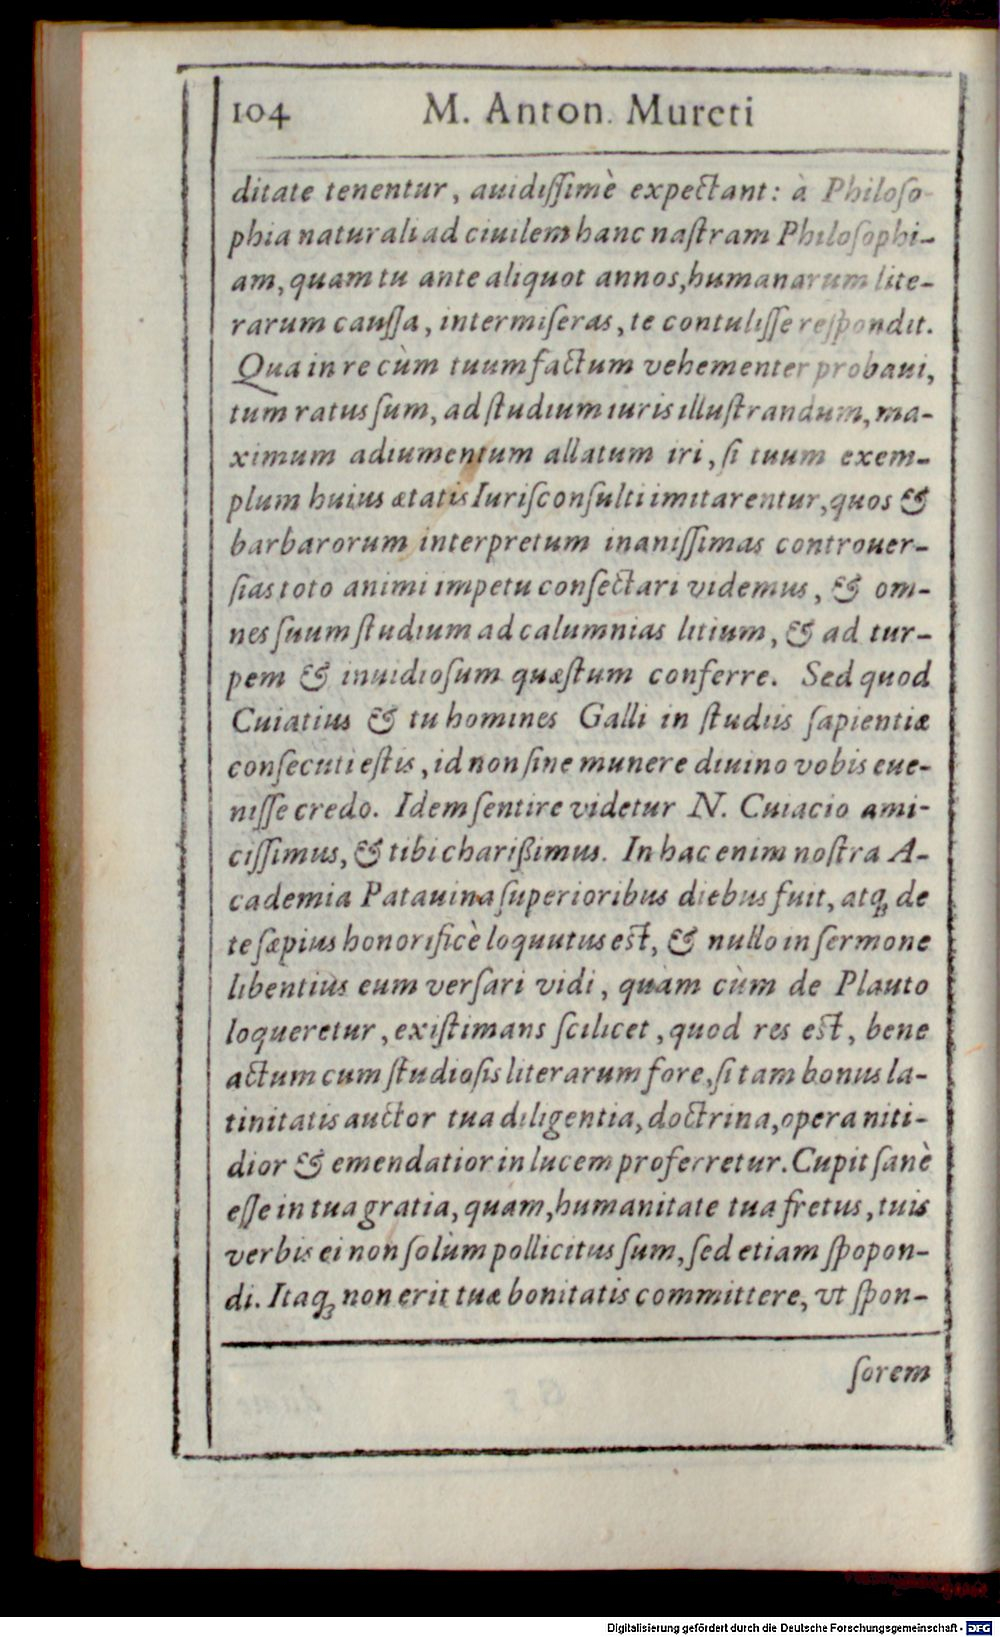 104 M. Anton. Mureti
ditate tenentur, auidiſſimè expectant: à Philoſo-
phia naturali ad ciuilem hanc naſtram Philoſophi-
am, quam tu ante aliquot annos, humanarum lite-
rarum cauſſa, intermiſeras, te contuliſſe reſpondit.
Qua in re cùm tuum factum vehementer probaui,
tum ratus ſum, ad ſtudium iuris illuſtrandum, ma-
ximum adiumentum allatum iri, ſi tuum exem-
plum huius ætatis Iuriſconſulti imitarentur, quos &
barbarorum interpretum inaniſſimas controuer-
ſias toto animi impetu conſectari videmus, & om-
nes ſuum ſtudium ad calumnias litium, & ad tur-
pem & inuidioſum quæſtum conferre. Sed quod
Cuiatius & tu homines Galli in ſtudiis ſapientiæ
conſecuti eſtis, id non ſine munere diuino vobis eue-
niſſe credo. Idem ſentire videtur N. Cuiacio ami-
ciſſimus, & tibi charißimus. In hac enim noſtra A-
cademia Patauina ſuperioribus diebus fuit, atq; de
te ſæpius honorificè loquutus eſt, & nullo in ſermone
libentius eum verſari vidi, quàm cùm de Plauto
loqueretur, exiſtimans ſcilicet, quod res eſt, bene
actum cum ſtudioſis literarum fore, ſi tam bonus la-
tinitatis auctor tua diligentia, doctrina, opera niti-
dior & emendatior in lucem proferretur. Cupit ſanè
eſſe in tua gratia, quam, humanitate tua fretus, tuis
verbis ei non ſolùm pollicitus ſum, ſed etiam ſpopon-
di. Itaq; non erit tuæ bonitatis committere, vt ſpon-
ſorem
Digitalisierung gefördert durch die Deutsche Forschungsgemeinschaft - DFG